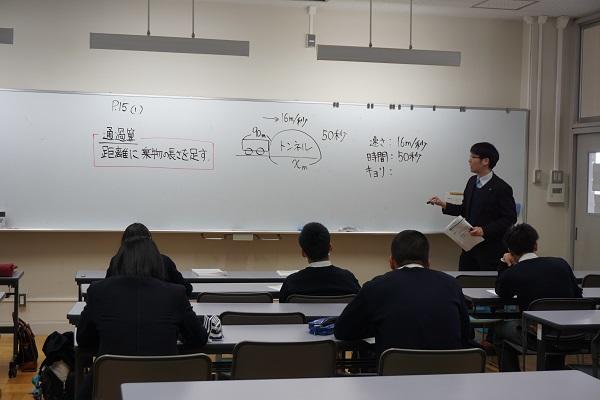 P.15 (1)
通過算
距離に乗物の長さを足す
→16m/秒
90m
トンネル
50秒
xm
速さ：16m/秒
時間：50秒
キョリ：